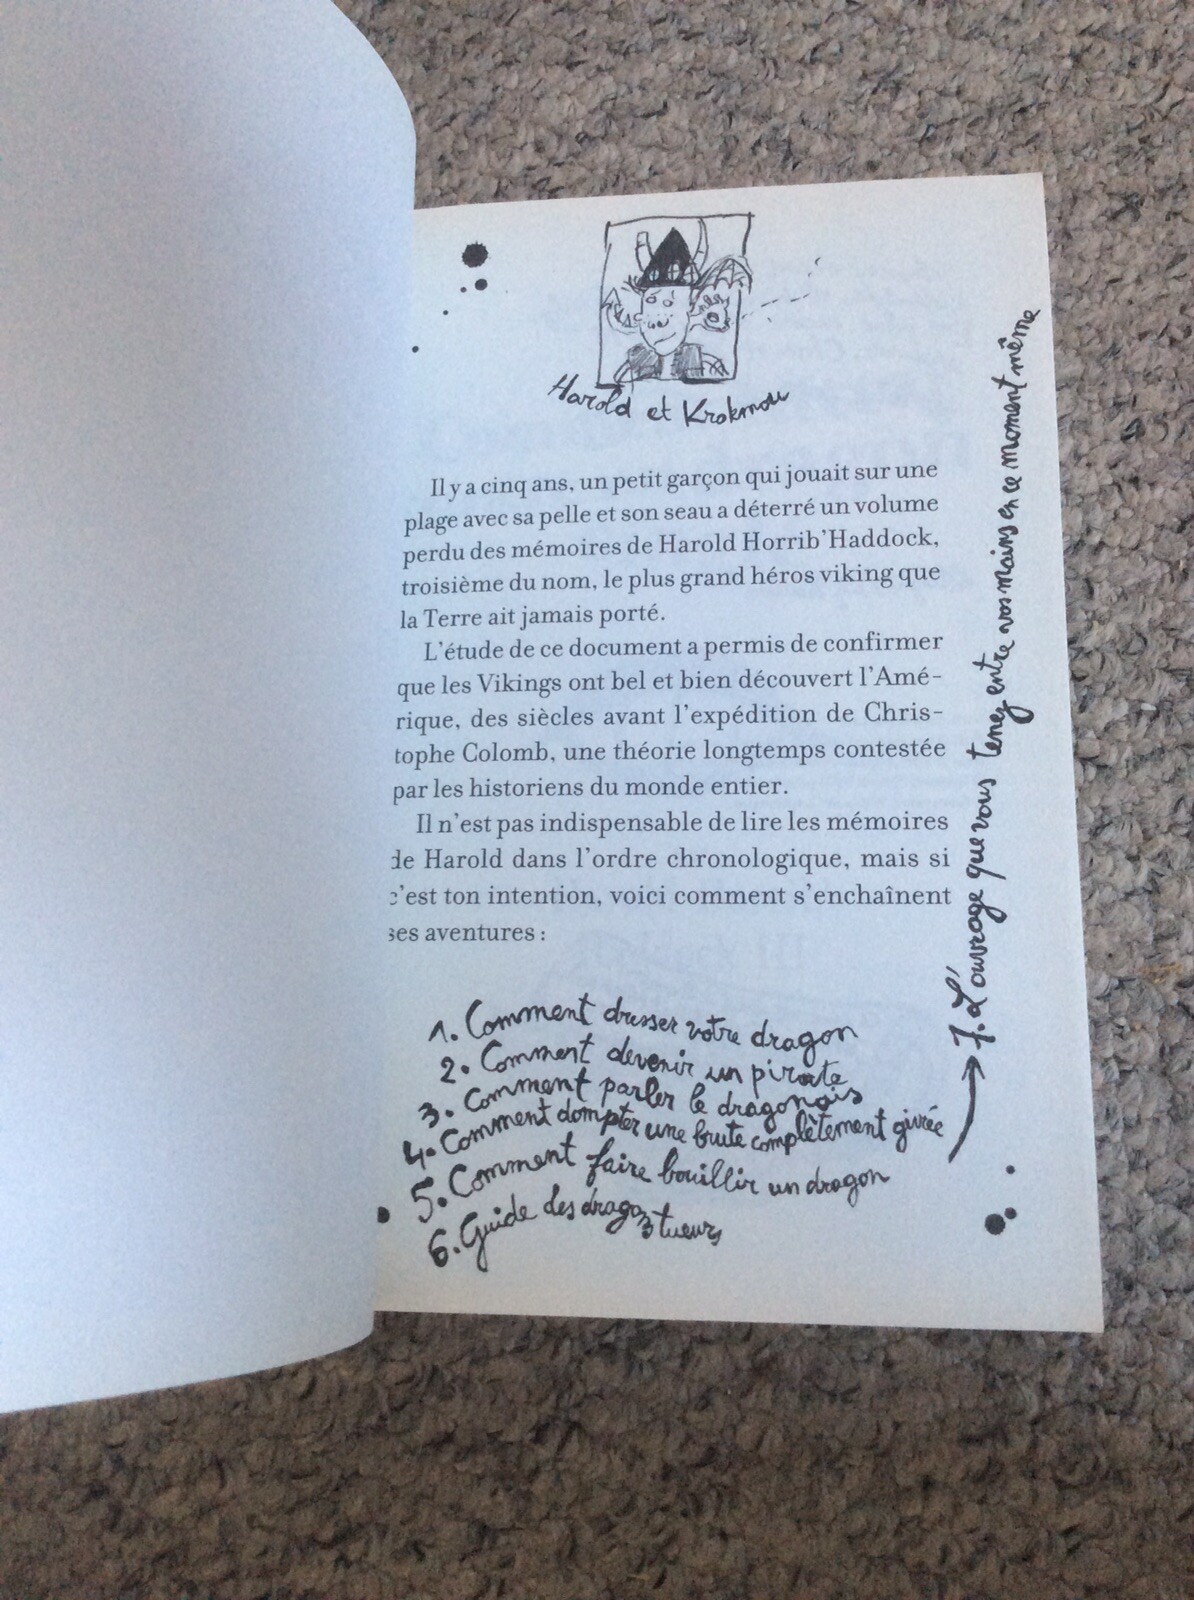 Harold et Krokmou
Il y a cinq ans, un petit garçon qui jouait sur une
plage avec sa pelle et son seau a déterré un volume
perdu des mémoires de Harold Horrib'Haddock,
troisième du nom, le plus grand héros viking que
la Terre ait jamais porté.
L'étude de ce document a permis de confirmer
que les Vikings ont bel et bien découvert l'Amé-
rique, des siècles avant l'expédition de Chris-
tophe Colomb, une théorie longtemps contestée
par les historiens du monde entier.
Il n'est pas indispensable de lire les mémoires
de Harold dans l'ordre chronologique, mais si
c'est ton intention, voici comment s'enchaînent
ses aventures :
1. Comment dresser votre dragon
2. Comment devenir un pirate
3. Comment parler le dragonais
4. Comment dompter une brute complètement givrée
5. Comment faire bouillir un dragon
6. Guide des dragons tueurs
7. L'ouvrage que vous tenez entre vos mains en ce moment même